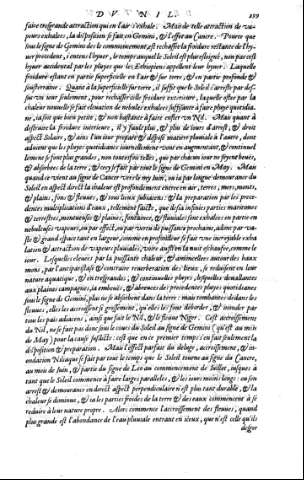 DV NIL
faire tresgrande attraction qui en l'air s'exhale: Mais de telle attraction de vapeurs
exhalees, la disposition se fait en Gemini, & l'effet au Cancre. Pource que
sous le signe de Gemini des le commencement, est reschaufee la froidure restante de l'hyuer
precedent, entens l'hyuer, le temps auquel le Soleil est plus esloigné, non pas cest
hyuer accidental par les pluyes que les Ethiopiens appellent leur hyuer: Laquelle
froidure estant en partie superficielle en l'air & sur terre, & en partie profonde &
sousterraine. Quant à la superficielle sur terre, il suffit que le Soleil s'arreste par dessus
un iour seulement, pour reschaufer ceste froidure exterieure, laquelle ostee par la
chaleur naturelle se fait eleuation de nebules exhalees suffisante à faire pluye quotidiane,
ia soit que bien petite, & non bastante à faire enfler un Nil. Mais quant à
destruire la froidure interieure, il y faut plus, & plus de iours d'arrest, & droit
aspect Solaire, & ainsi l'un iour preparé & disposé matiere pluuiale à l'autre, dont
aduient que les pluyes quotidianes iournellement vont en augmentant, & continuellement
se font plus grandes, non toutesfois telles, qui par chacun iour ne soyent beues,
& absorbees de la terre, & tary se fait par tout le signe de Gemini en May. Mais
quand ce vient au signe de Cancre vers la my Juin, ou ia par longue demourance du
Soleil en aspect direct la chaleur est profondement entree en air, terres, mers, monts,
& plains, fons, & fleuues, & tous lieux subiacens: & la preparation par les precedentes
multiplications d'eaux, tellement faicte, que ils sa infinies parties maritimes
& terrestres, montueuses & plaines, fontaines, & fluuiales sont exhalees en partie en
nebuleuses vapeurs, ou par effect, ou par vertu de puissance prochaine, adonc par vaste
& grand espace tant en largeur, comme en profondeur se fait une incroyable exhalation
& attraction de vapeurs pluuiales, voire aussi bien la nuit eschaufee, comme le
iour. Lesquelles eleuees par la puissante chaleur, & amoncellees autour des hauts
mons, par l'antiparistase & contraire reuerberation des lieux, se reduisent en leur
nature aquatique, & en tresgrandes, & continuelles pluyes, lesquelles deuallantes
aux plaines campagnes, ia embeues, & abreuees des precedentes pluyes quotidianes
sous le signe de Gemini, plus ne se absorbent dans la terre: mais tombantes dedans les
fleuues, elles les accroissent & grossissent, qu'elles les font deborder, & inonder par
tout les pais adiacens, ainsi que fait le Nil, & le fleuue Niger. Cest accroissement
du Nil, ne se fait pas donc sous le cours du Soleil au signe de Gemini (qui est au mois
de May) pour la cause susdicte: cest que en ce premier temps s'en fait seulement la
disposition & preparation. Mais l'effect parfait du deluge, accroissement, & inondation
Nilaque se fait par tout le temps que le Soleil tourne au signe du Cancre,
au mois de Juin, & partie du signe de Leo au commencement de Juillet, iusques à
tant que le Soleil commence à faire larges paralleles, & les iours moins longs: en son
arrest & demourance en direct aspect perpendiculaire n'est plus tant durable, & la
chaleur se diminue, & ia les parties froides de la terre & des eaux commencent à se
reduire à leur nature propre. Alors commence l'accroissement des fleuues, quand
plus grande est l'abondance de l'eau pluuiale entrant en iceux, que n'est celle qu'ils